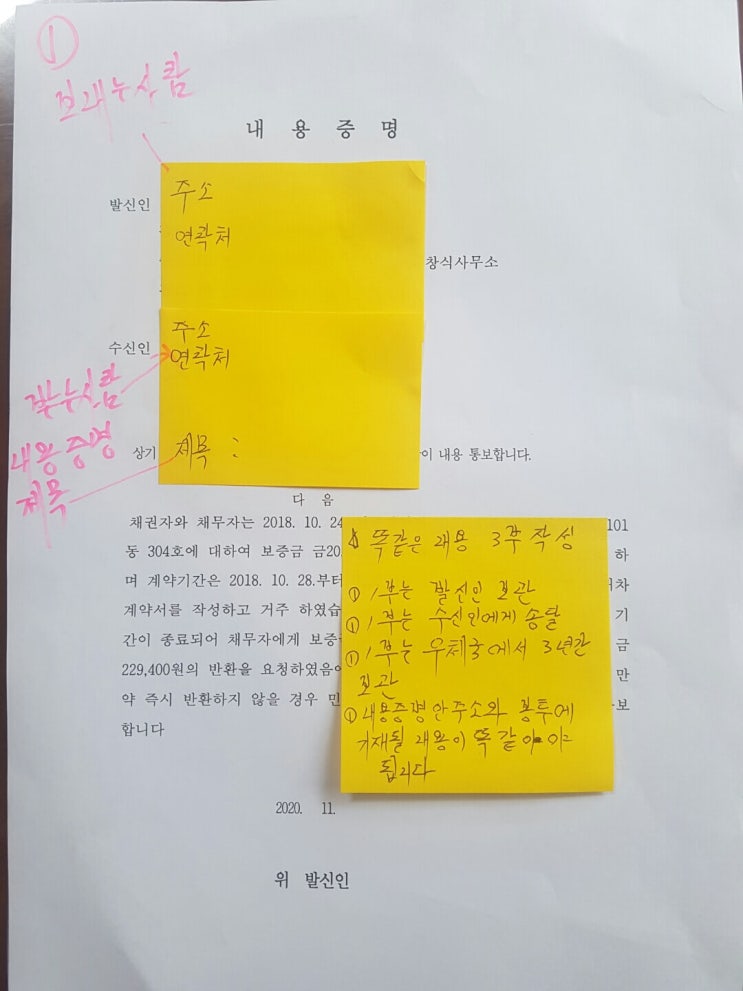 ①
보내는 사람
내 용 증 명
발신인
주소
연락처
창식사무소
수신인
주소
연락처
받는 사람
내용증명
제목
상기
제목 :
이 내용 통보합니다.
다 음
채권자와 채무자는 2018. 10. 24
101
동 304호에 대하여 보증금 금20
하
며 계약기간은 2018. 10. 28.부터
차
계약서를 작성하고 거주 하였습
기
간이 종료되어 채무자에게 보증
금
229,400원의 반환을 요청하였음에
만
약 즉시 반환하지 않을 경우 민
보
합니다
똑같은 내용 3부 작성
① 1부는 발신인 보관
① 1부는 수신인에게 송달
① 1부는 우체국에서 3년간
보관
① 내용증명안 주소와 봉투에
기재될 내용이 똑같아야
됩니다
2020. 11.
위 발신인